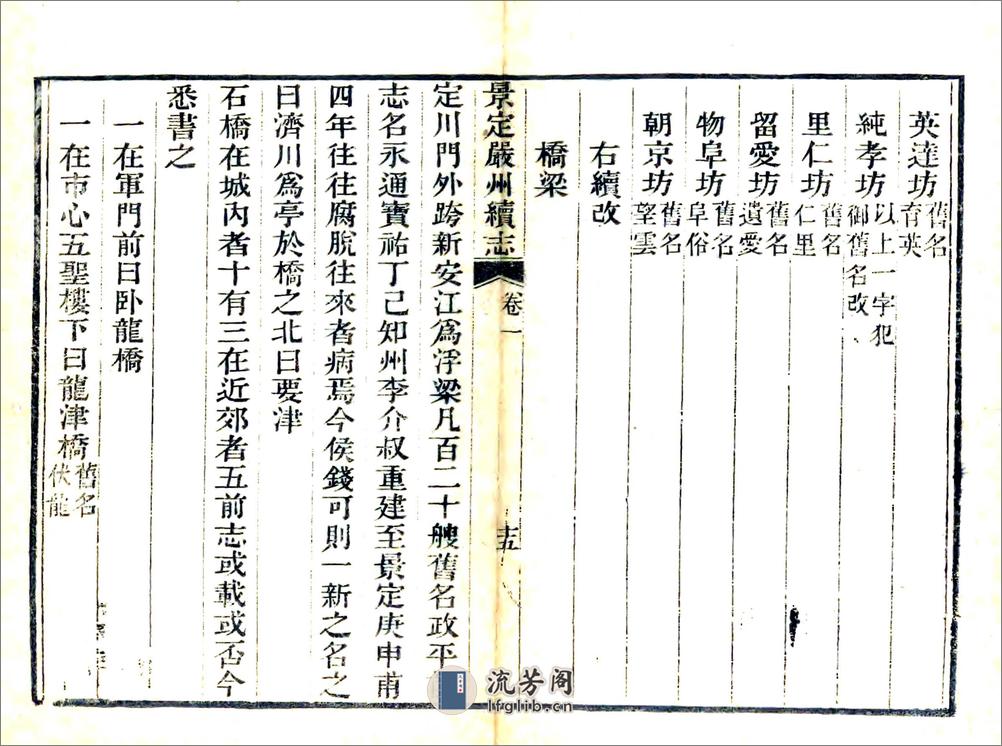 英達坊舊名育英
純孝坊以上一字犯御舊名改
里仁坊舊名仁里
留愛坊舊名遺愛
物阜坊舊名阜俗
朝京坊舊名望雲
右續改
橋梁
景定嚴州續志 卷一 十五
定川門外跨新安江爲浮梁凡百二十艘舊名政平
志名永通寶祐丁已知州李介叔重建至景定庚申甫
四年往往腐脫往來者病焉今侯錢可則一新之名之
曰濟川爲亭於橋之北曰要津
石橋在城內者十有三在近郊者五前志或載或否今
悉書之
一在軍門前曰卧龍橋
一在市心五聖樓下曰龍津橋舊名伏龍
流芳阁
lfglib.cn